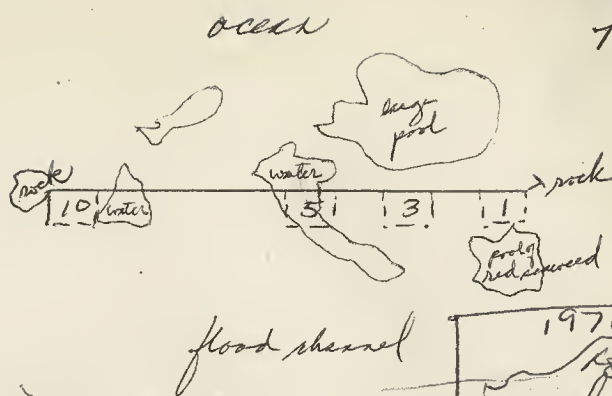 ocean
7
large
pool
rock
water
rock
10
water
5
3
1
pool of
red seaweed
flood channel
197